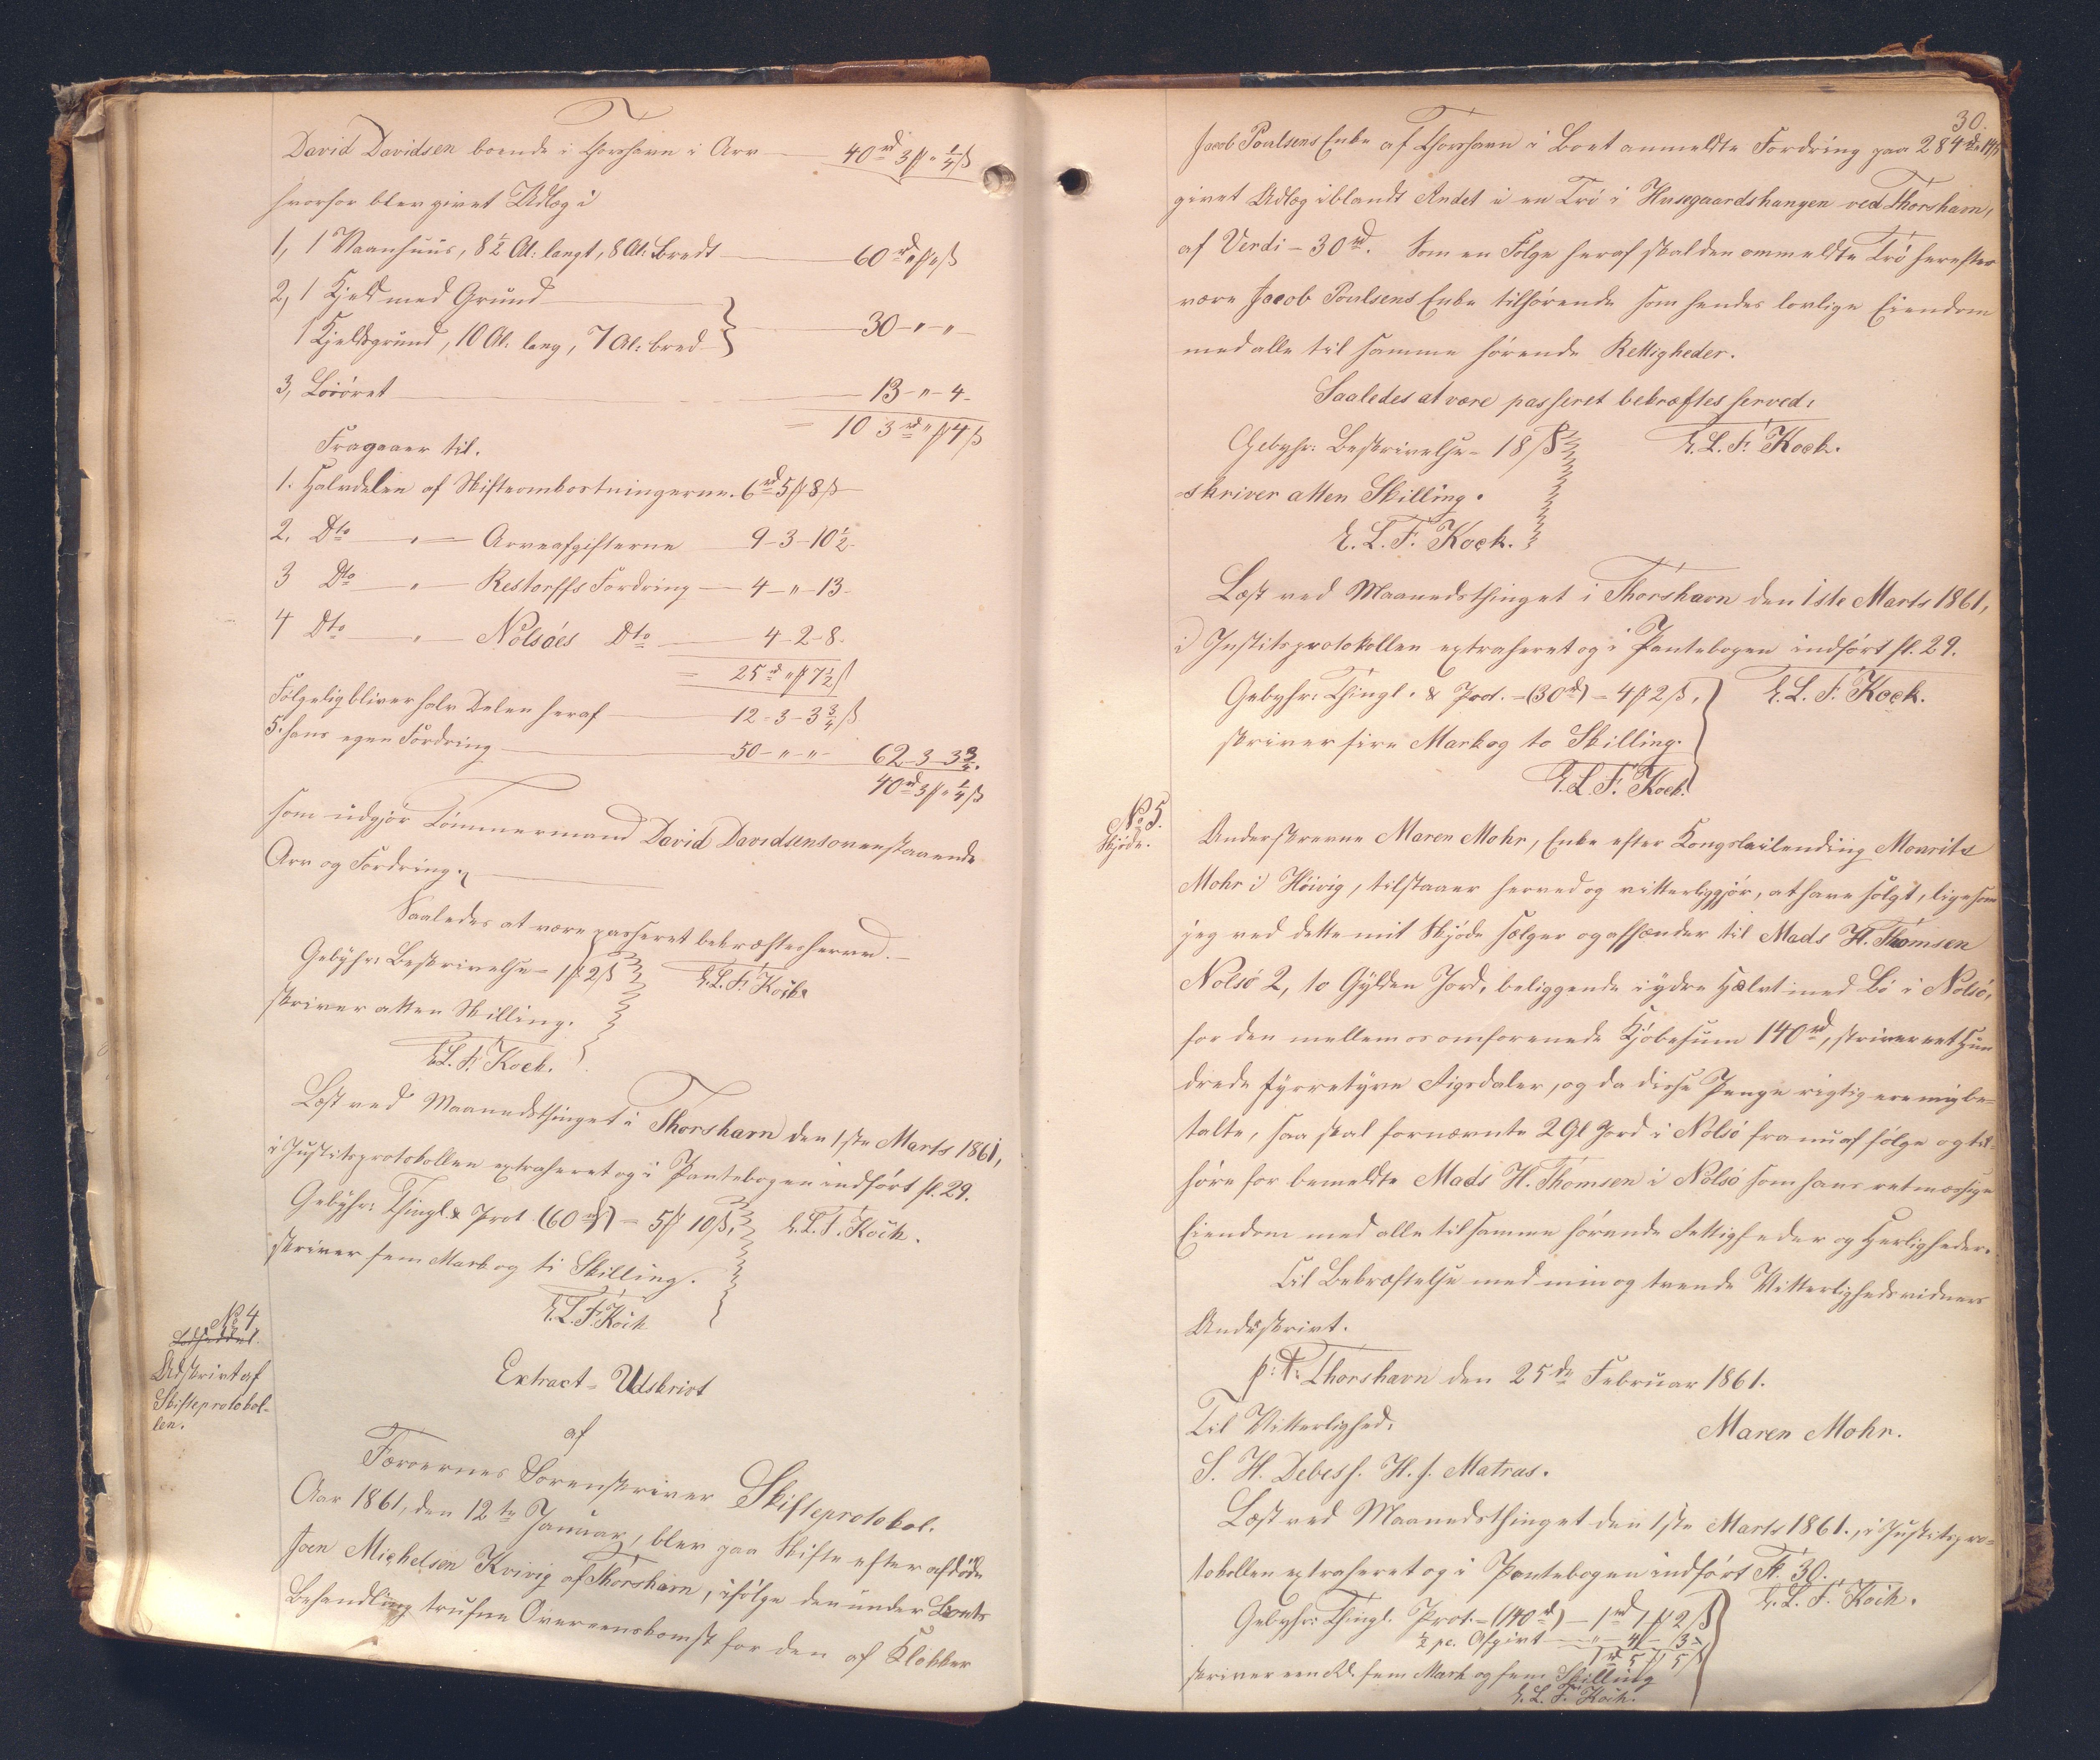 David Davidsen boende i Thorshavn i Arv — 40 rd 3 ₻ " ¼ ß
hvorfor blev givet Udlæg i
1, 1 Vaanhuus, 8½ Al: langt, 8 Al: bredt — 60 rd " ₻ " ß
2, 1 Kjeld med Grund
1 Kjeldgrund, 10 Al: lang, 7 Al: bred — 30 - " - "
3, Løiøret — 13 - " - 4 -
= 103 rd " ₻ 4 ß
Fragaaer til.
1. Halvdelen af Skifteombostningerne. 6 rd 5 ₻ 8 ß
2. Dto — " — Arveafgifterne 9 - 3 - 10½ -
3 Dto — " — Restorffs Fordring — 4 - " - 13 -
4 Dto — " — Nolsøes Dto — 4 - 2 - 8 -
= 25 rd " ₻ 7½ ß
Følgelig bliver halv Delen heraf — 12 - 3 - 3¾ ß
5. hans egen Fordring — 50 - " - " - 62 - 3 - 3¾.
40 rd 3 ₻ " ¼ ß
som udgjør Tømmermand David Davidsens ovenstaaende
Arv og Fordring.
Saaledes at være passeret bekræftes herved. —
Gebyhr: Beskrivelse - 1 ₻ 2 ß E. L. F. Koch.
skriver atten Skilling.
E. L. F. Koch.
Læst ved Maanedsthinget i Thorshavn den 1ste Marts 1861,
i Justitsprotokollen extraheret og i Pantebogen indført fl. 29.
Gebyhr: Thingl. & Prot. (60 rd) = 5 ₻ 10 ß. E. L. F. Koch.
skriver fem Mark og ti Skilling.
E. L. F. Koch
No 4
Udskrivt af
Skifteprotokol-
len.
Extract - Udskrivt
af
Færøernes Sorenskriver Skifteprotokol.
Aar 1861, den 12te Januar, blev paa Skifte efter afdøde
Joen Michelsen Kvivig af Thorshavn, ifølge den under Boets
Behandling trufne Overeenskomst for den af Klokker
30.
Jacob Poulsens Enke af Thorshavn i Boet anmeldte Fordring paa 284 rd " 14 ß
givet Udlæg iblandt Andet i en Trø i Husegaardshaugen ved Thorshavn,
af Verdi - 30 rd. Som en Følge heraf skal den ommeldte Trø herefter
være Jacob Poulsens Enke tilhørende som hendes lovlige Eiendom
med alle til samme hørende Rettigheder.
Saaledes at være passeret bekræftes herved.
Gebyhr: Beskrivelse - 18 ß E. L. F. Koch.
- skriver atten Skilling.
E. L. F. Koch.
Læst ved Maanedsthinget i Thorshavn den 1ste Marts 1861,
i Justitsprotokollen extraheret og i Pantebogen indført fl. 29.
Gebyhr: Thingl. & Prot. - (30 rd) - 4 ₻ 2 ß. E. L. F. Koch.
skriver fire Mark og to Skilling.
E. L. F. Koch.
No 5.
Skjøde.
Underskrevne Maren Mohr, Enke efter Kongsleilending Mouritz
Mohr i Høivig, tilstaaer herved og vitterliggjør, at have solgt, ligesom
jeg ved dette mit Skjøde sælger og afhænder til Mads H. Thomsen
Nolsø 2, to Gylden Jord, beliggende i ydre Hælvt med Bø i Nolsø,
for den mellem os omforenede Kjøbesum 140 rd, skriver eet Hun
drede fyrretyve Rigsdaler, og da disse Penge rigtig ere mig be-
talte, saa skal fornævnte 2 Gl Jord i Nolsø fra nu af følge og til-
høre for bemeldte Mads H. Thomsen i Nolsø som hans retmæssige
Eiendom med alle til samme hørende Rettigheder og Herligheder.
Til Bekræftelse med min og tvende Vitterlighedsvidners
Underskrivt.
p: t: Thorshavn den 25de Februar 1861.
Til Vitterlighed. Maren Mohr.
S. H. Debess. H. J. Matras.
Læst ved Maanedsthinget den 1ste Marts 1861., i Justitspro-
tokollen extraheret og i Pantebogen indført Fl. 30.
Gebyhr: Thingl. Prot. - (140 rd) - 1 rd 1 ₻ 2 ß E. L. F. Koch.
½ pc. Afgivt — " - 4 - 3 -
1 rd 5 ₻ 5 ß
skriver een Rd. fem Mark og fem Skilling
E. L. F. Koch.